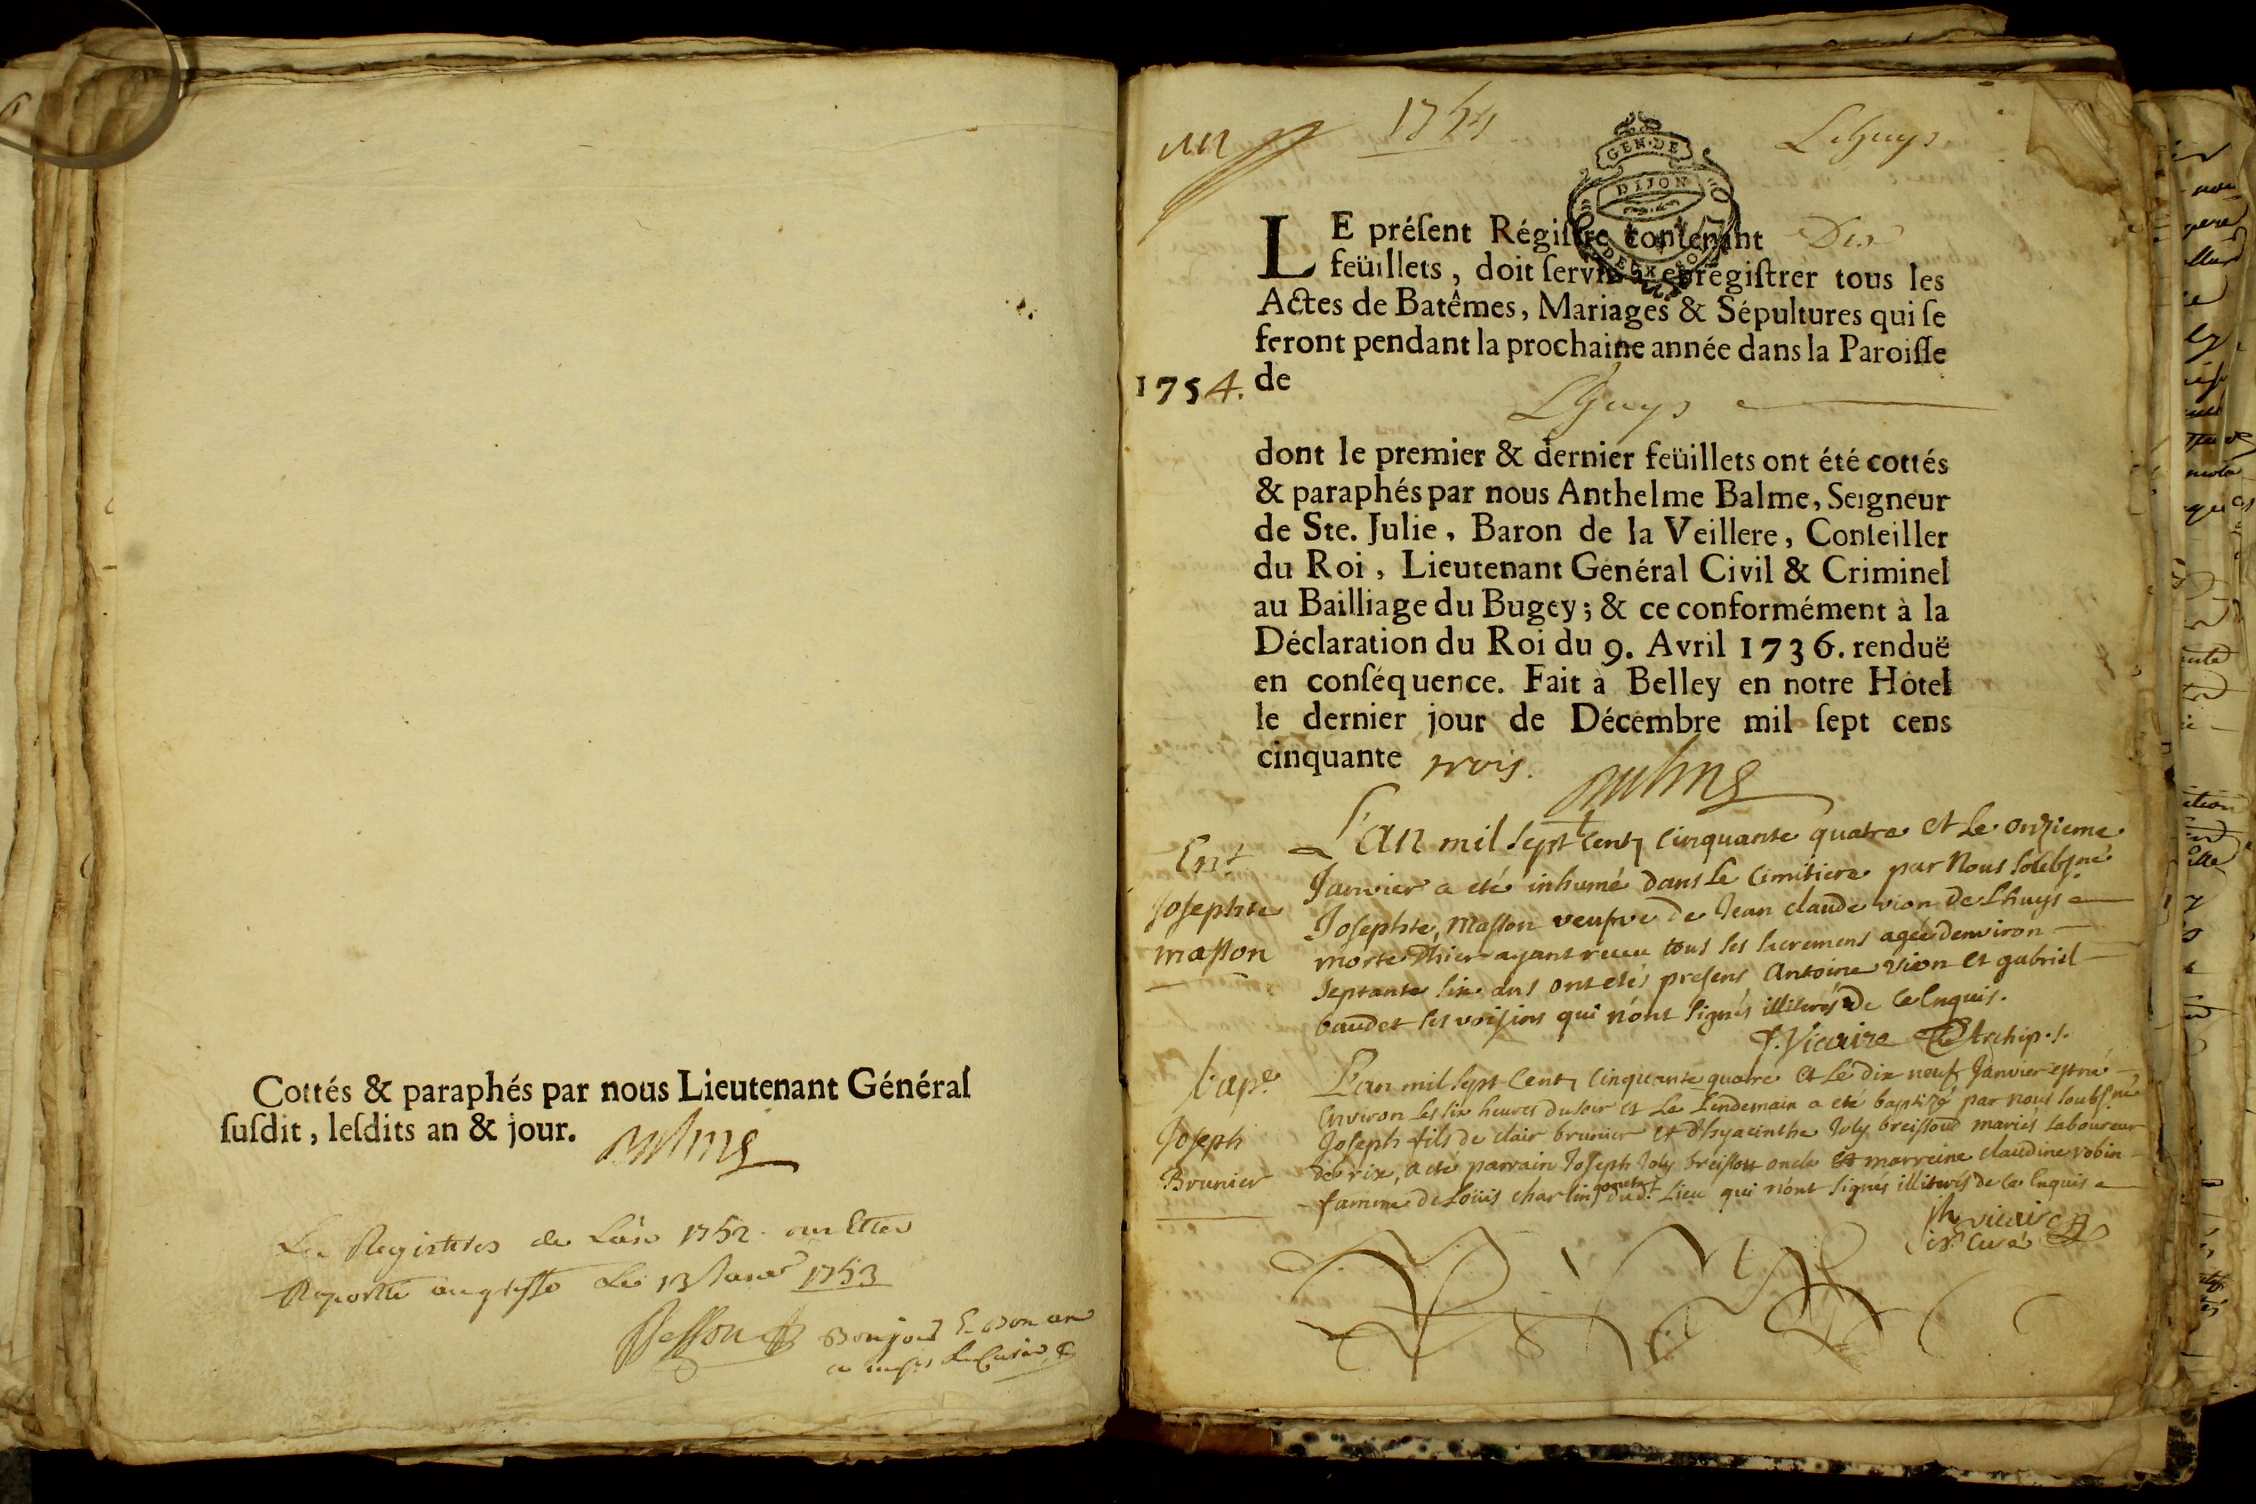 Cottés & paraphés par nous Lieutenant Général
ſuſdit, leſdits an & jour.
Les Registres de Lan 1752 ont Etés
Raporté au greffe Le 13 Janer 1753
Besson
1754
Lhuys
GEN·DE
DIJON
DEUX SO
LE préſent Régiſtre contenant Dix
feüillets, doit ſervir à enrégiſtrer tous les
Actes de Batêmes, Mariages & Sépultures qui ſe
feront pendant la prochaine année dans la Paroiſſe
1754. de
Lhuys
dont le premier & dernier feüillets ont été cottés
& paraphés par nous Anthelme Balme, Seigneur
de Ste. Julie, Baron de la Veillere, Conſeiller
du Roi, Lieutenant Général Civil & Criminel
au Bailliage du Bugey; & ce conformément à la
Déclaration du Roi du 9. Avril 1736. renduë
en conſéquence. Fait à Belley en notre Hôtel
le dernier jour de Décembre mil ſept cens
cinquante trois.
Balme
Ent
Josephte
masson
L'an mil sept cent cinquante quatre et le onzieme
Janvier a eté inhumé dans le cimitiere par Nous soubsné
Josephte Masson veufve de Jean claude vion de Lhuys
morte Dhier ayant receu tous ses sacremens agée denviron
septante six ans ont etés presens Antoine Vion et gabriel
baudet ses voisins qui n'ont signés illiterés De ce Enquis.
Vicaire Archip.
bape
Joseph
Brunier
L'an mil sept cent cinquante quatre et le dix neuf Janvier est né
environ les six heures du soir et le lendemain a eté baptizé par nous soubsné
Joseph fils de clair brunier et d'hyacinthe Joly breissoud mariés laboureur
de rix, a eté parrain Joseph Joly breissou oncle et marreine claudine robin
famme de Loüis charlin dud. Lieu qui n'ont signes illiterés de ce Enquis
vicaire
Curé